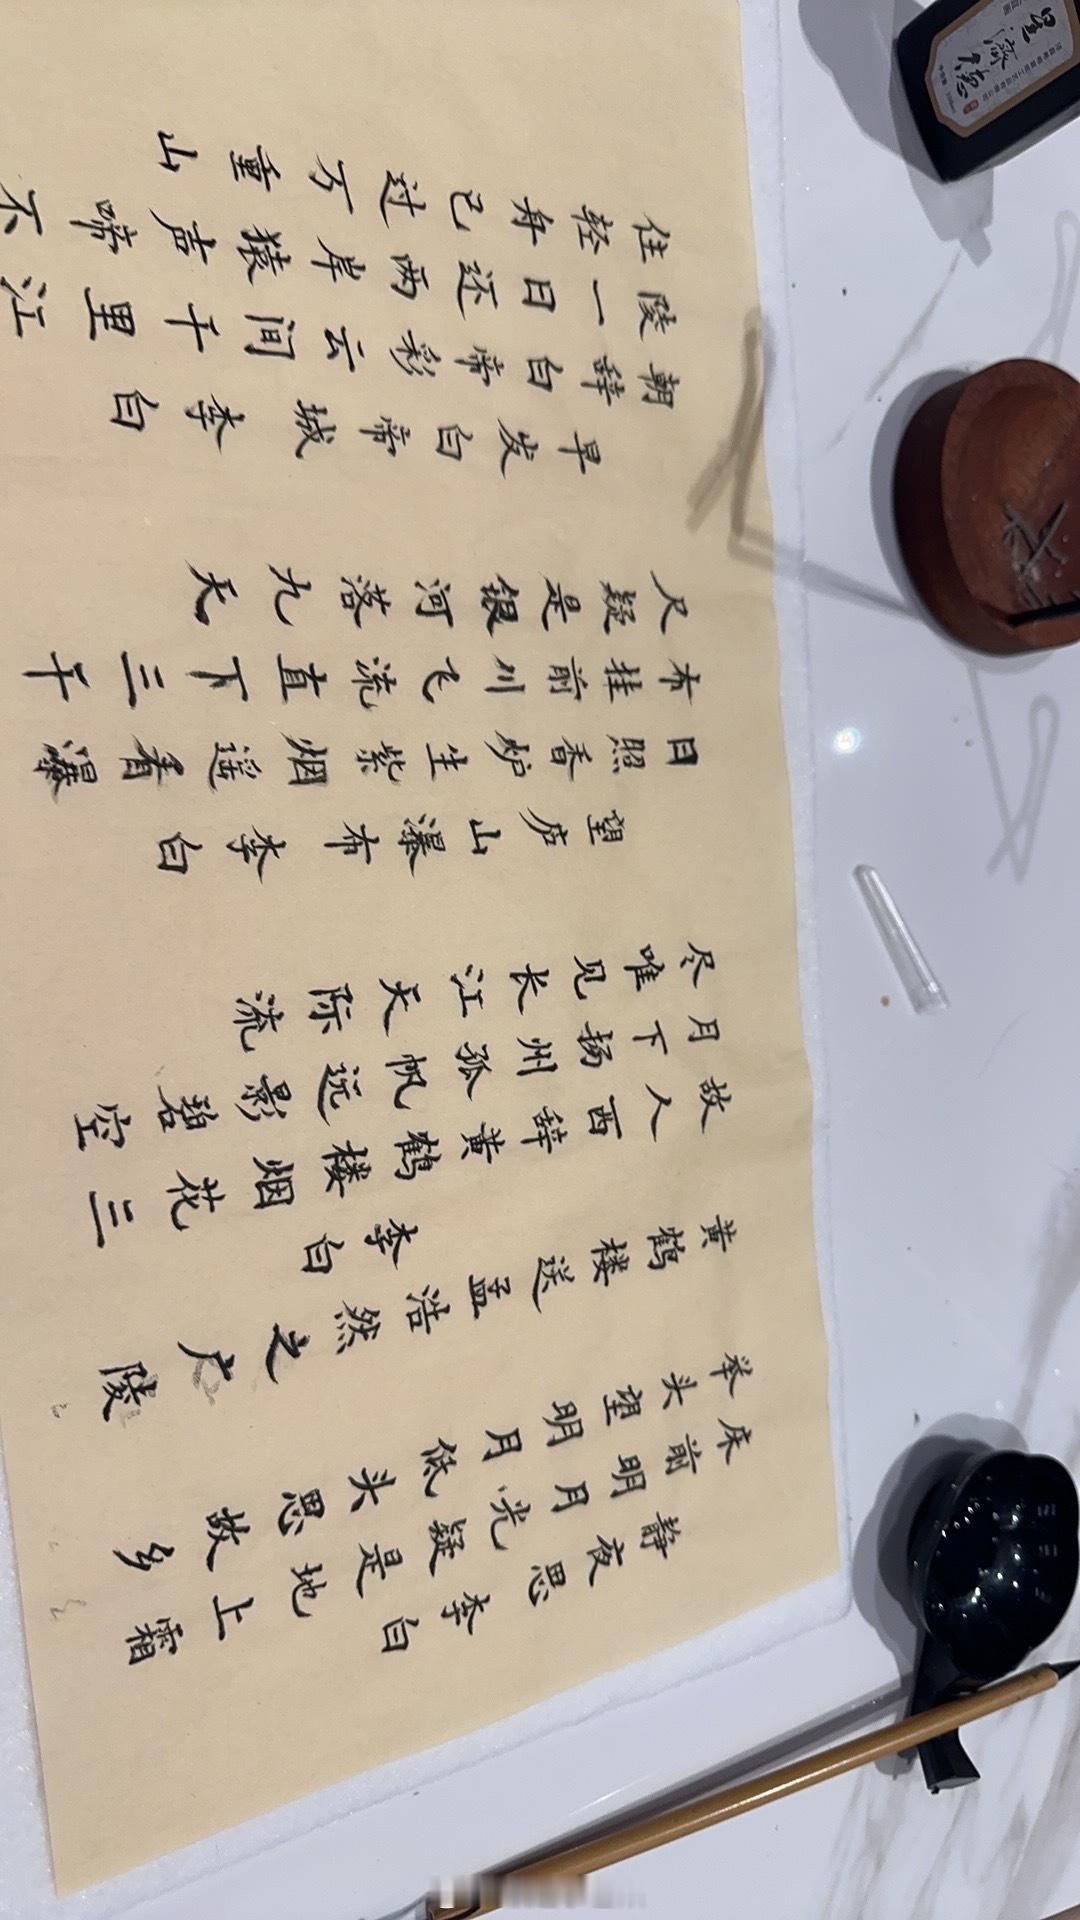 静夜思 李白
床前明月光疑是地上霜
举头望明月低头思故乡
黄鹤楼送孟浩然之广陵
李白
故人西辞黄鹤楼烟花三
月下扬州孤帆远影碧空
尽唯见长江天际流
望庐山瀑布 李白
日照香炉生紫烟遥看瀑
布挂前川飞流直下三千
尺疑是银河落九天
早发白帝城 李白
朝辞白帝彩云间千里江
陵一日还两岸猿声啼不
住轻舟已过万重山